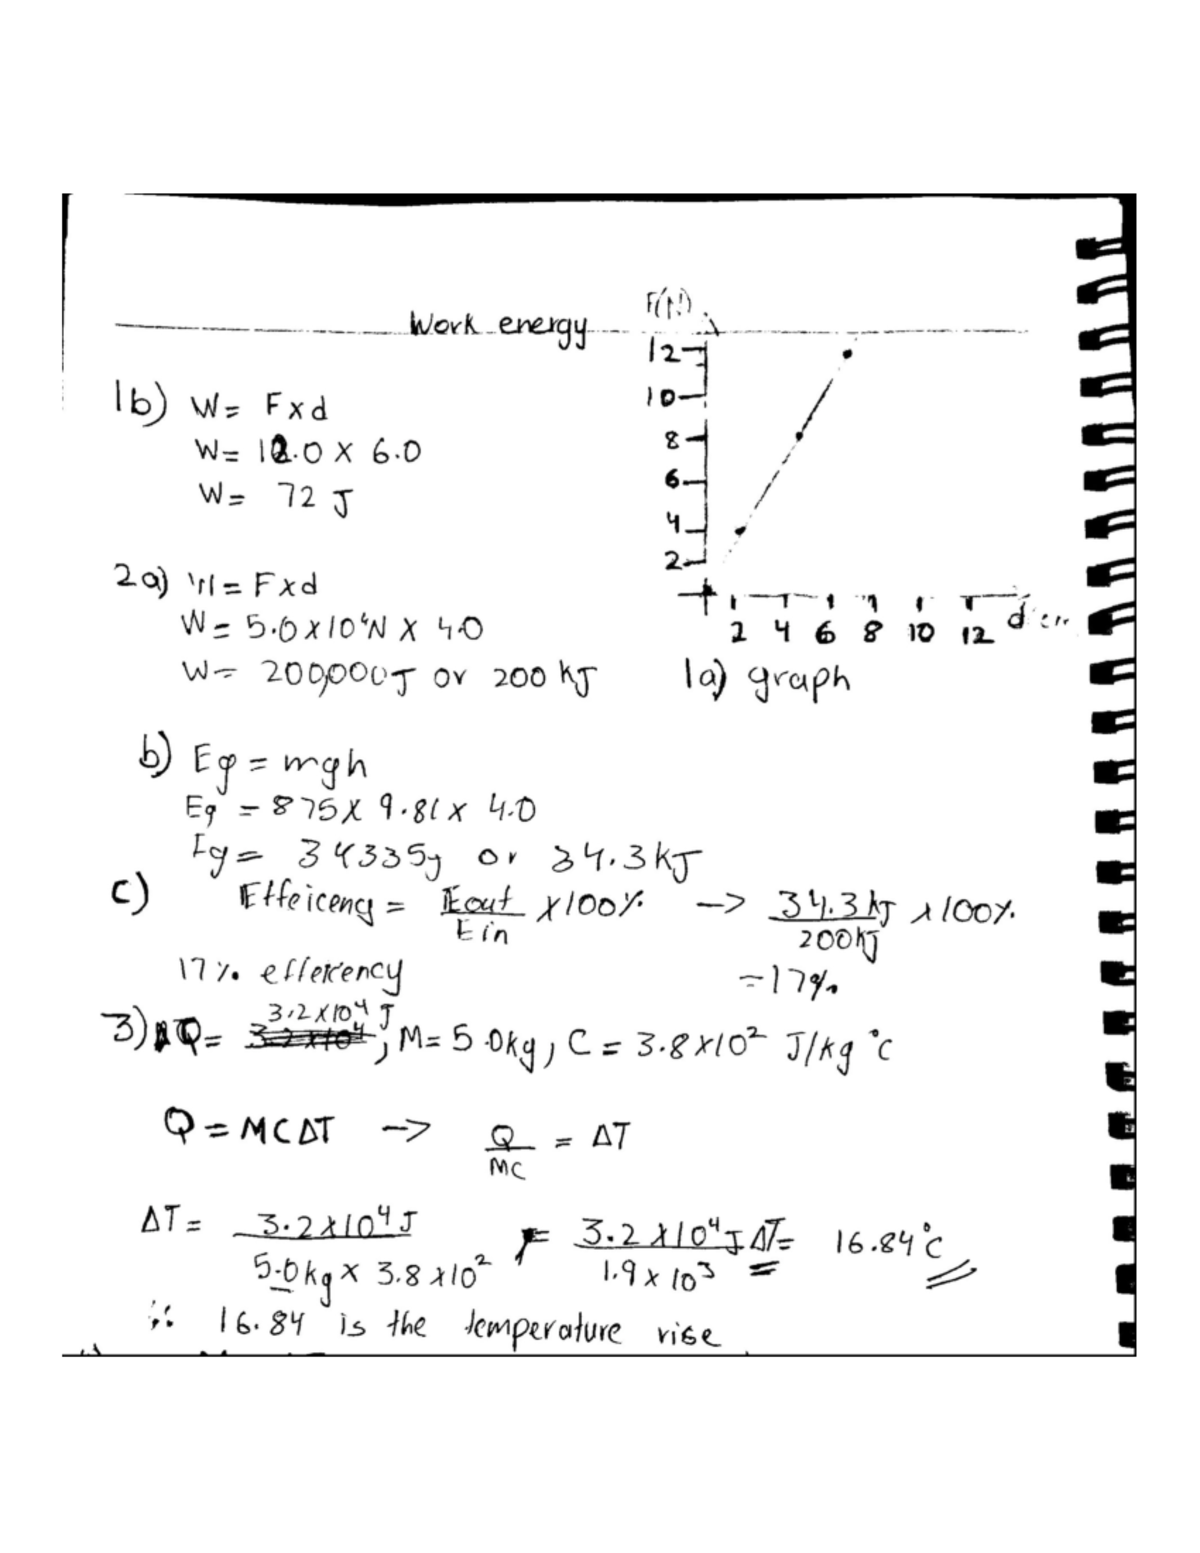 Work energy
F(N)
12
10
8
6
4
2
2 4 6 8 10 12 d cm
1a) graph
1b) W= F x d
W= 12.0 x 6.0
W= 72 J
2a) W= F x d
W= 5.0x10⁴N x 4.0
W= 200,000J or 200 kJ
b) Eg = mgh
Eg = 875 x 9.81 x 4.0
Eg= 34335J or 34.3kJ
c) Effeiceny = Eout/Ein x100% -> 34.3kJ/200kJ x100%
17% effeiency =17%
3) Q= 3.2x10⁴ J; M= 5.0kg, C = 3.8x10² J/kg °c
Q = MCΔT -> Q/MC = ΔT
ΔT= 3.2x10⁴J/5.0kg x 3.8x10² = 3.2x10⁴J/1.9x10³ ΔT= 16.84°c
∴ 16.84 is the temperature rise